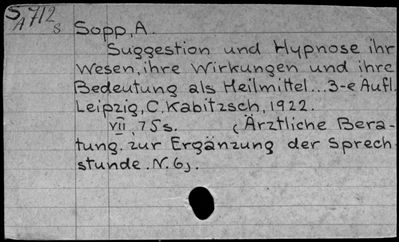 S
A 712
S
Sopp, A.
Suggestion und Hypnose ihr
Wesen, ihre Wirkungen und ihre
Bedeutung als Heilmittel... 3-e Aufl.
Leipzig, C. Kabitzsch, 1922.
VII, 75 s. (Ärztliche Bera-
tung. zur Ergänzung der Sprech
stunde. N. 6).